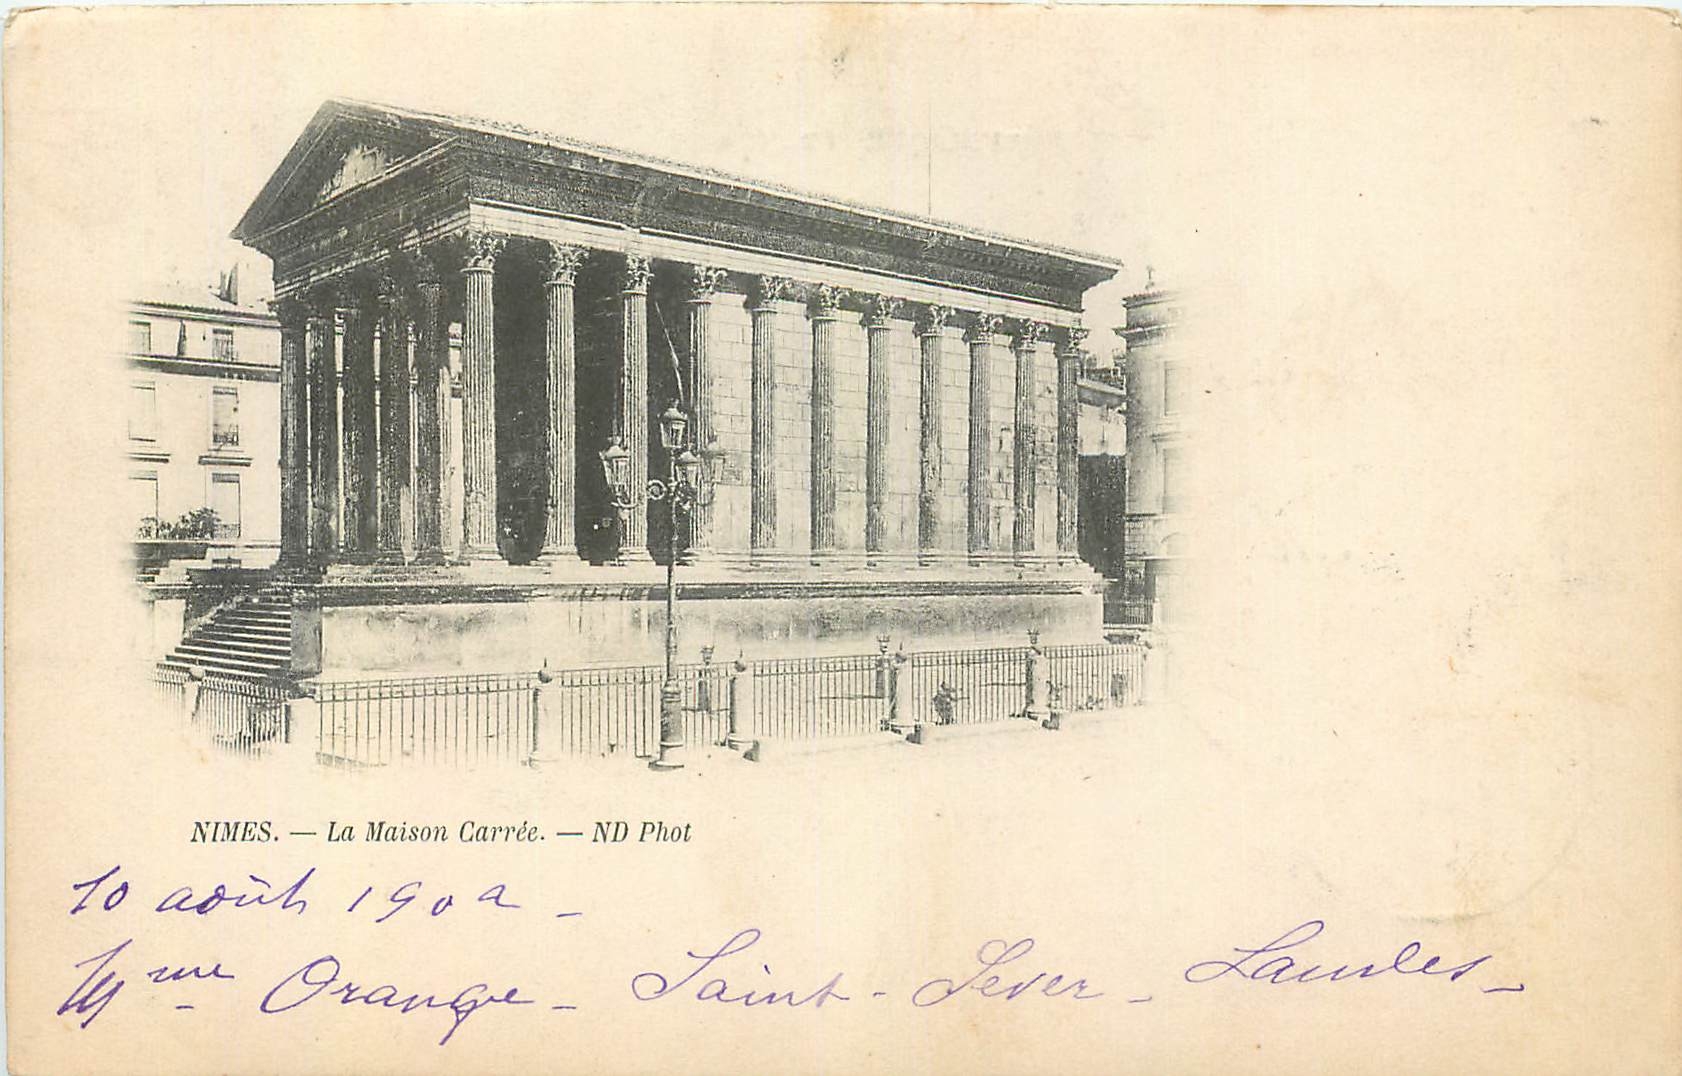 NIMES. — La Maison Carrée. — ND Phot
10 août 1902 –
Mme Orange – Saint-Sever – Landes –